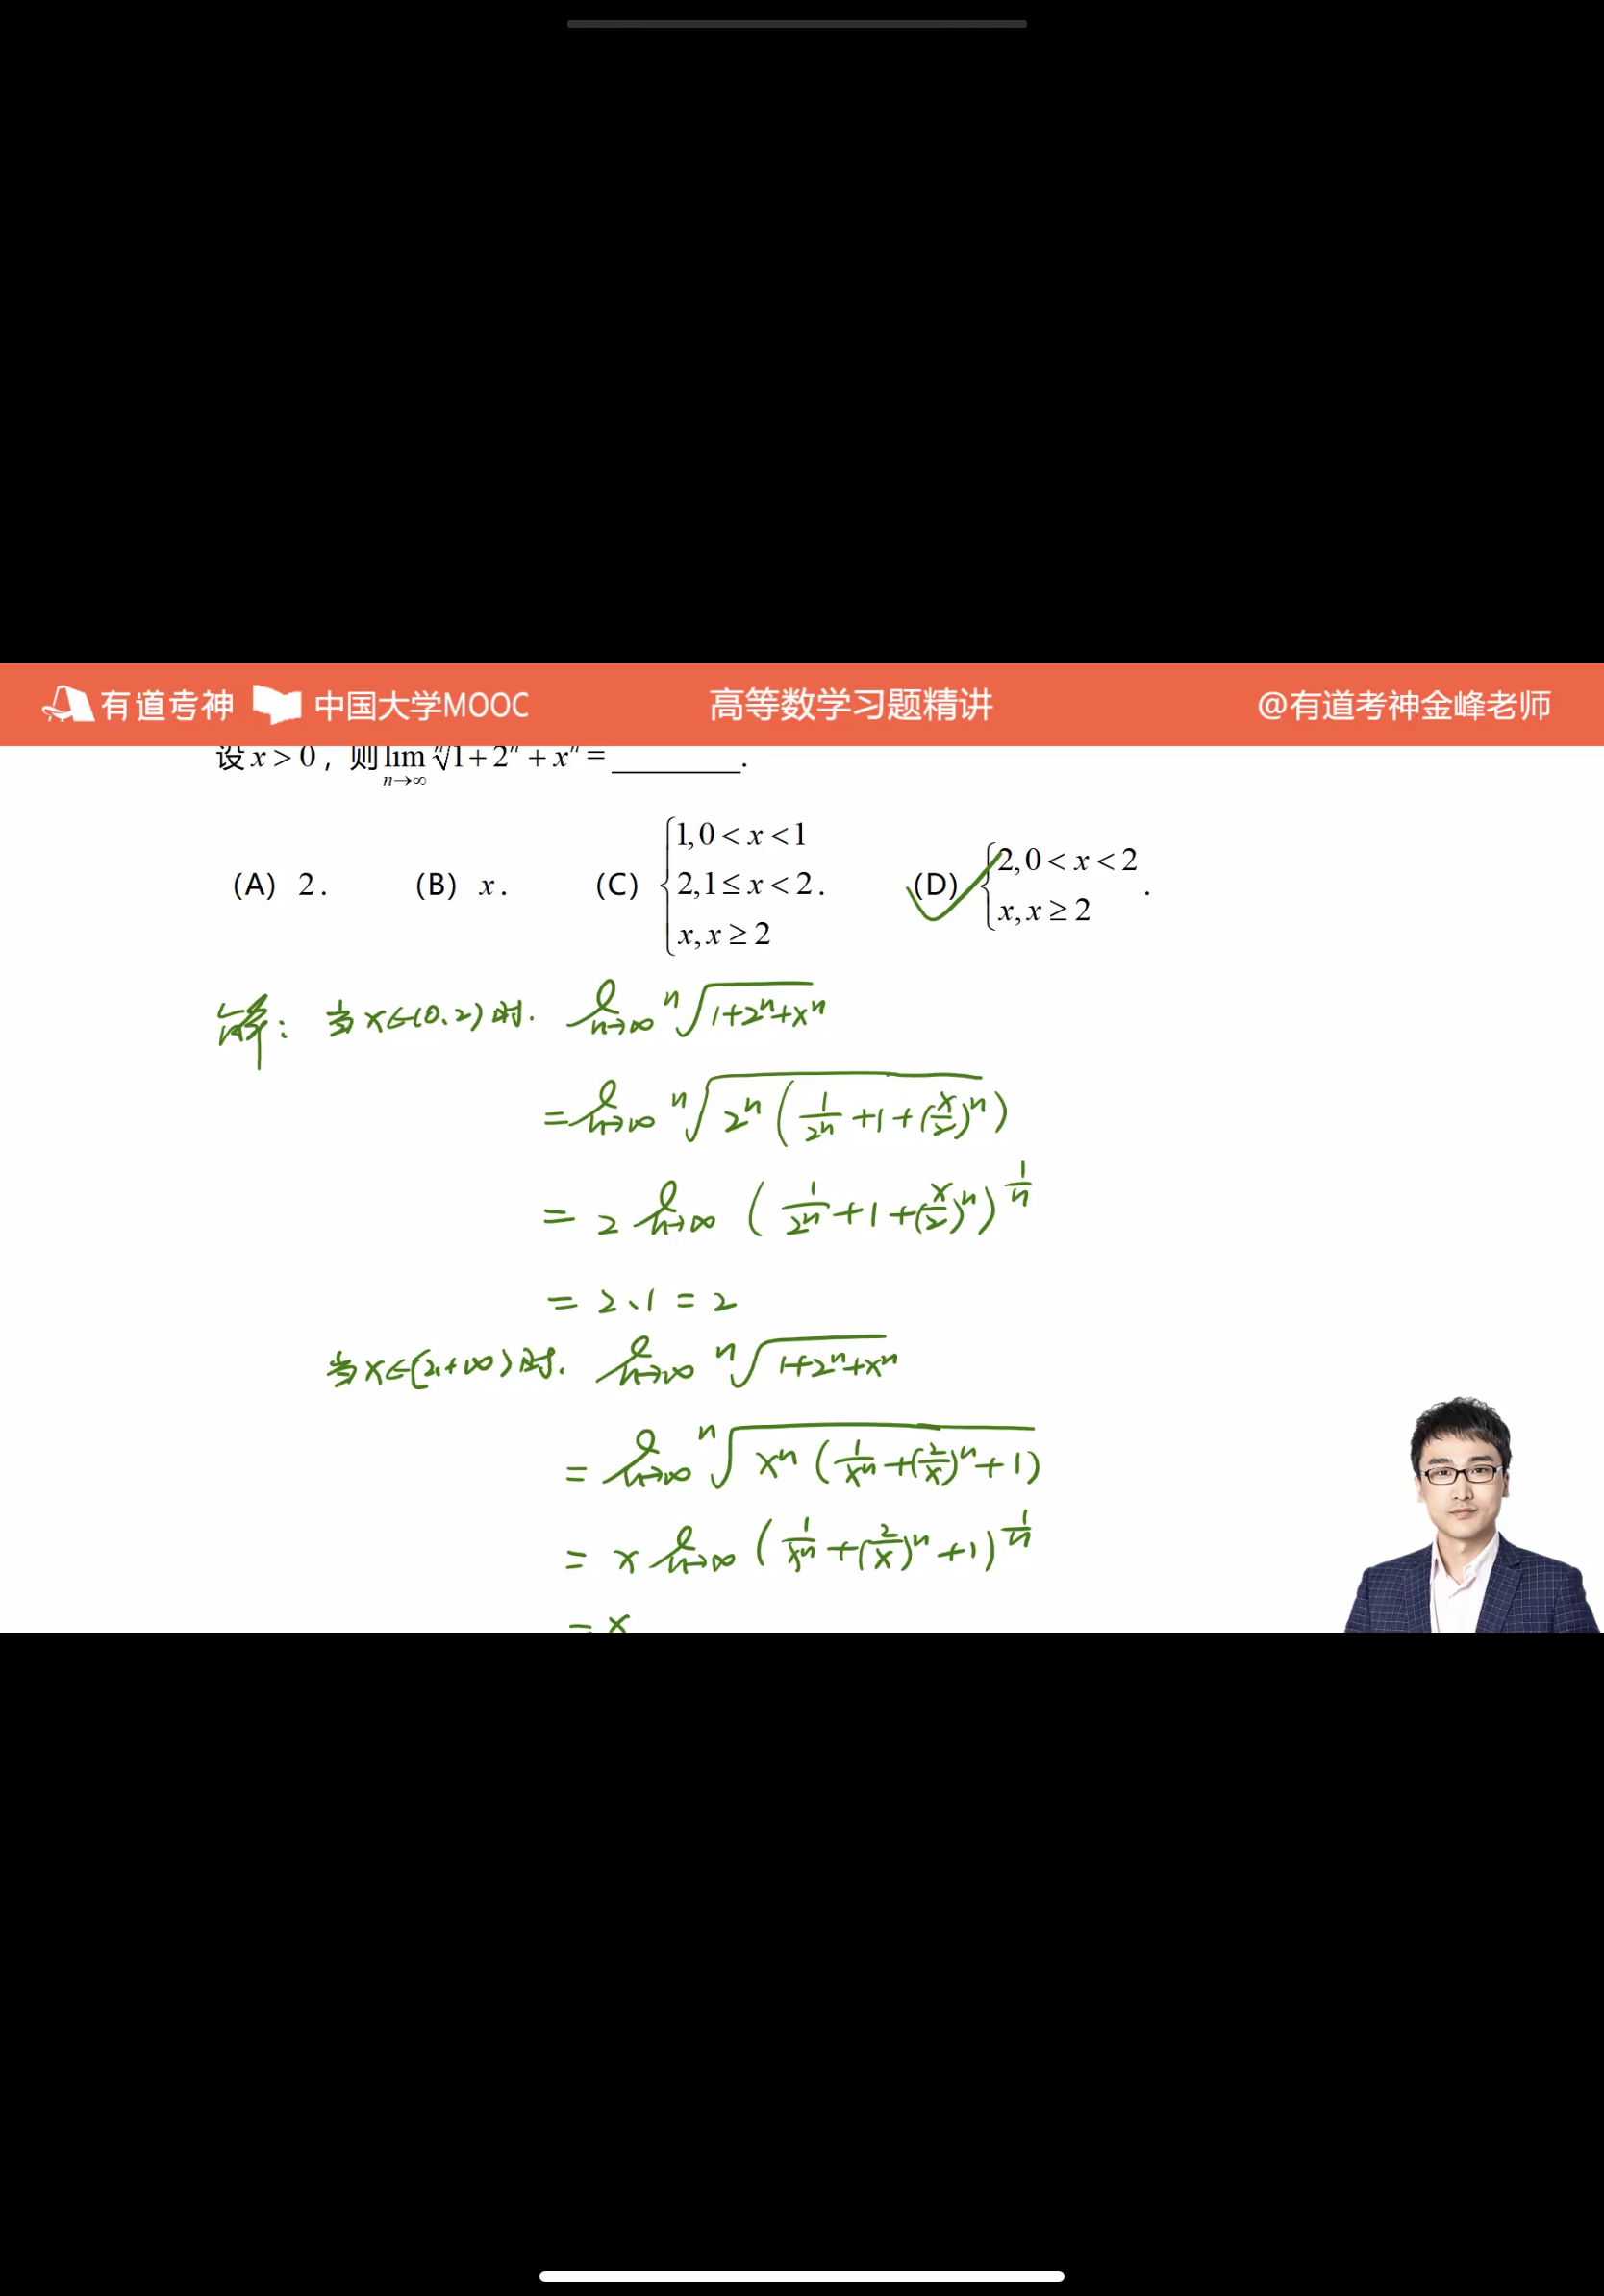 有道考神 中国大学MOOC 高等数学习题精讲 @有道考神金峰老师
设 x > 0，则 lim_{n→∞} ⁿ√(1 + 2ⁿ + xⁿ) = ________.
(A) 2. (B) x. (C) {1, 0 < x < 1; 2, 1 ≤ x < 2; x, x ≥ 2. (D) {2, 0 < x < 2; x, x ≥ 2.
解: 当 x∈(0,2) 时. lim_{n→∞} ⁿ√(1+2ⁿ+xⁿ)
= lim_{n→∞} ⁿ√(2ⁿ(1/2ⁿ + 1 + (x/2)ⁿ))
= 2 lim_{n→∞} (1/2ⁿ + 1 + (x/2)ⁿ)^{1/n}
= 2·1 = 2
当 x∈[2,+∞) 时. lim_{n→∞} ⁿ√(1+2ⁿ+xⁿ)
= lim_{n→∞} ⁿ√(xⁿ(1/xⁿ + (2/x)ⁿ + 1))
= x lim_{n→∞} (1/xⁿ + (2/x)ⁿ + 1)^{1/n}
= x